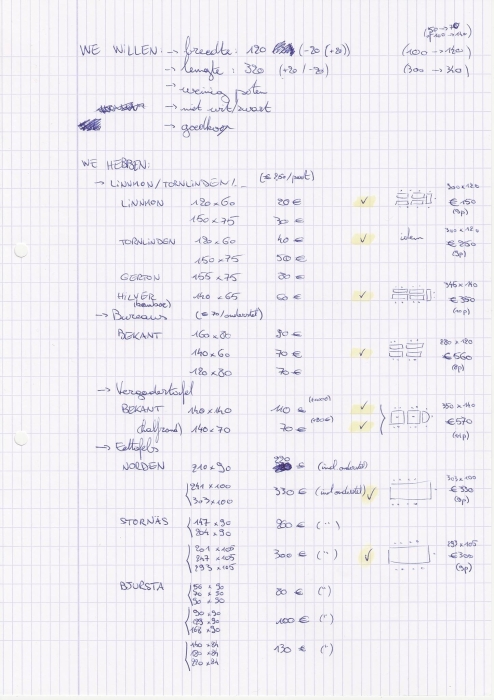 (50 → 70
WE WILLEN: → breedte: 120 (-20 (+20)) (100 → 140)
→ lengte: 320 (+20 / -20) (300 → 340)
→ weinig poten
→ niet wit/zwart
→ goedkoop
WE HEBBEN:
→ LINNMON/TORNLINDEN/... (€ 250/poot)
LINNMON 120 x 60 20 € ✓ 300 x 120
150 x 75 30 € € 150
(8p)
TORNLINDEN 120 x 60 40 € ✓ idem 300 x 120
150 x 75 50 € € 250
(8p)
GERTON 155 x 75 80 €
HILVER 140 x 65 60 € ✓ 345 x 140
(bamboe) € 350
(10p)
→ Bureaus (€ 70/onderstel)
BEKANT 160 x 80 90 €
140 x 60 70 € ✓ 280 x 120
120 x 80 70 € € 560
(8p)
→ Vergadertafel
BEKANT 140 x 140 110 € ✓ 350 x 140
(halfrond) 140 x 70 70 € ✓ € 570
(10p)
→ Eettafels
NORDEN 210 x 90 220 € (incl onderstel)
241 x 100 330 € (incl onderstel) ✓ 303 x 100
303 x 100 € 330
(8p)
STORNÄS 147 x 90 260 € (")
204 x 90
201 x 105
247 x 105 300 € (") ✓ 293 x 105
293 x 105 € 300
(8p)
BJURSTA 50 x 90
70 x 90 80 € (")
90 x 90
90 x 90
129 x 90 100 € (")
168 x 90
140 x 84
180 x 84 130 € (")
220 x 84